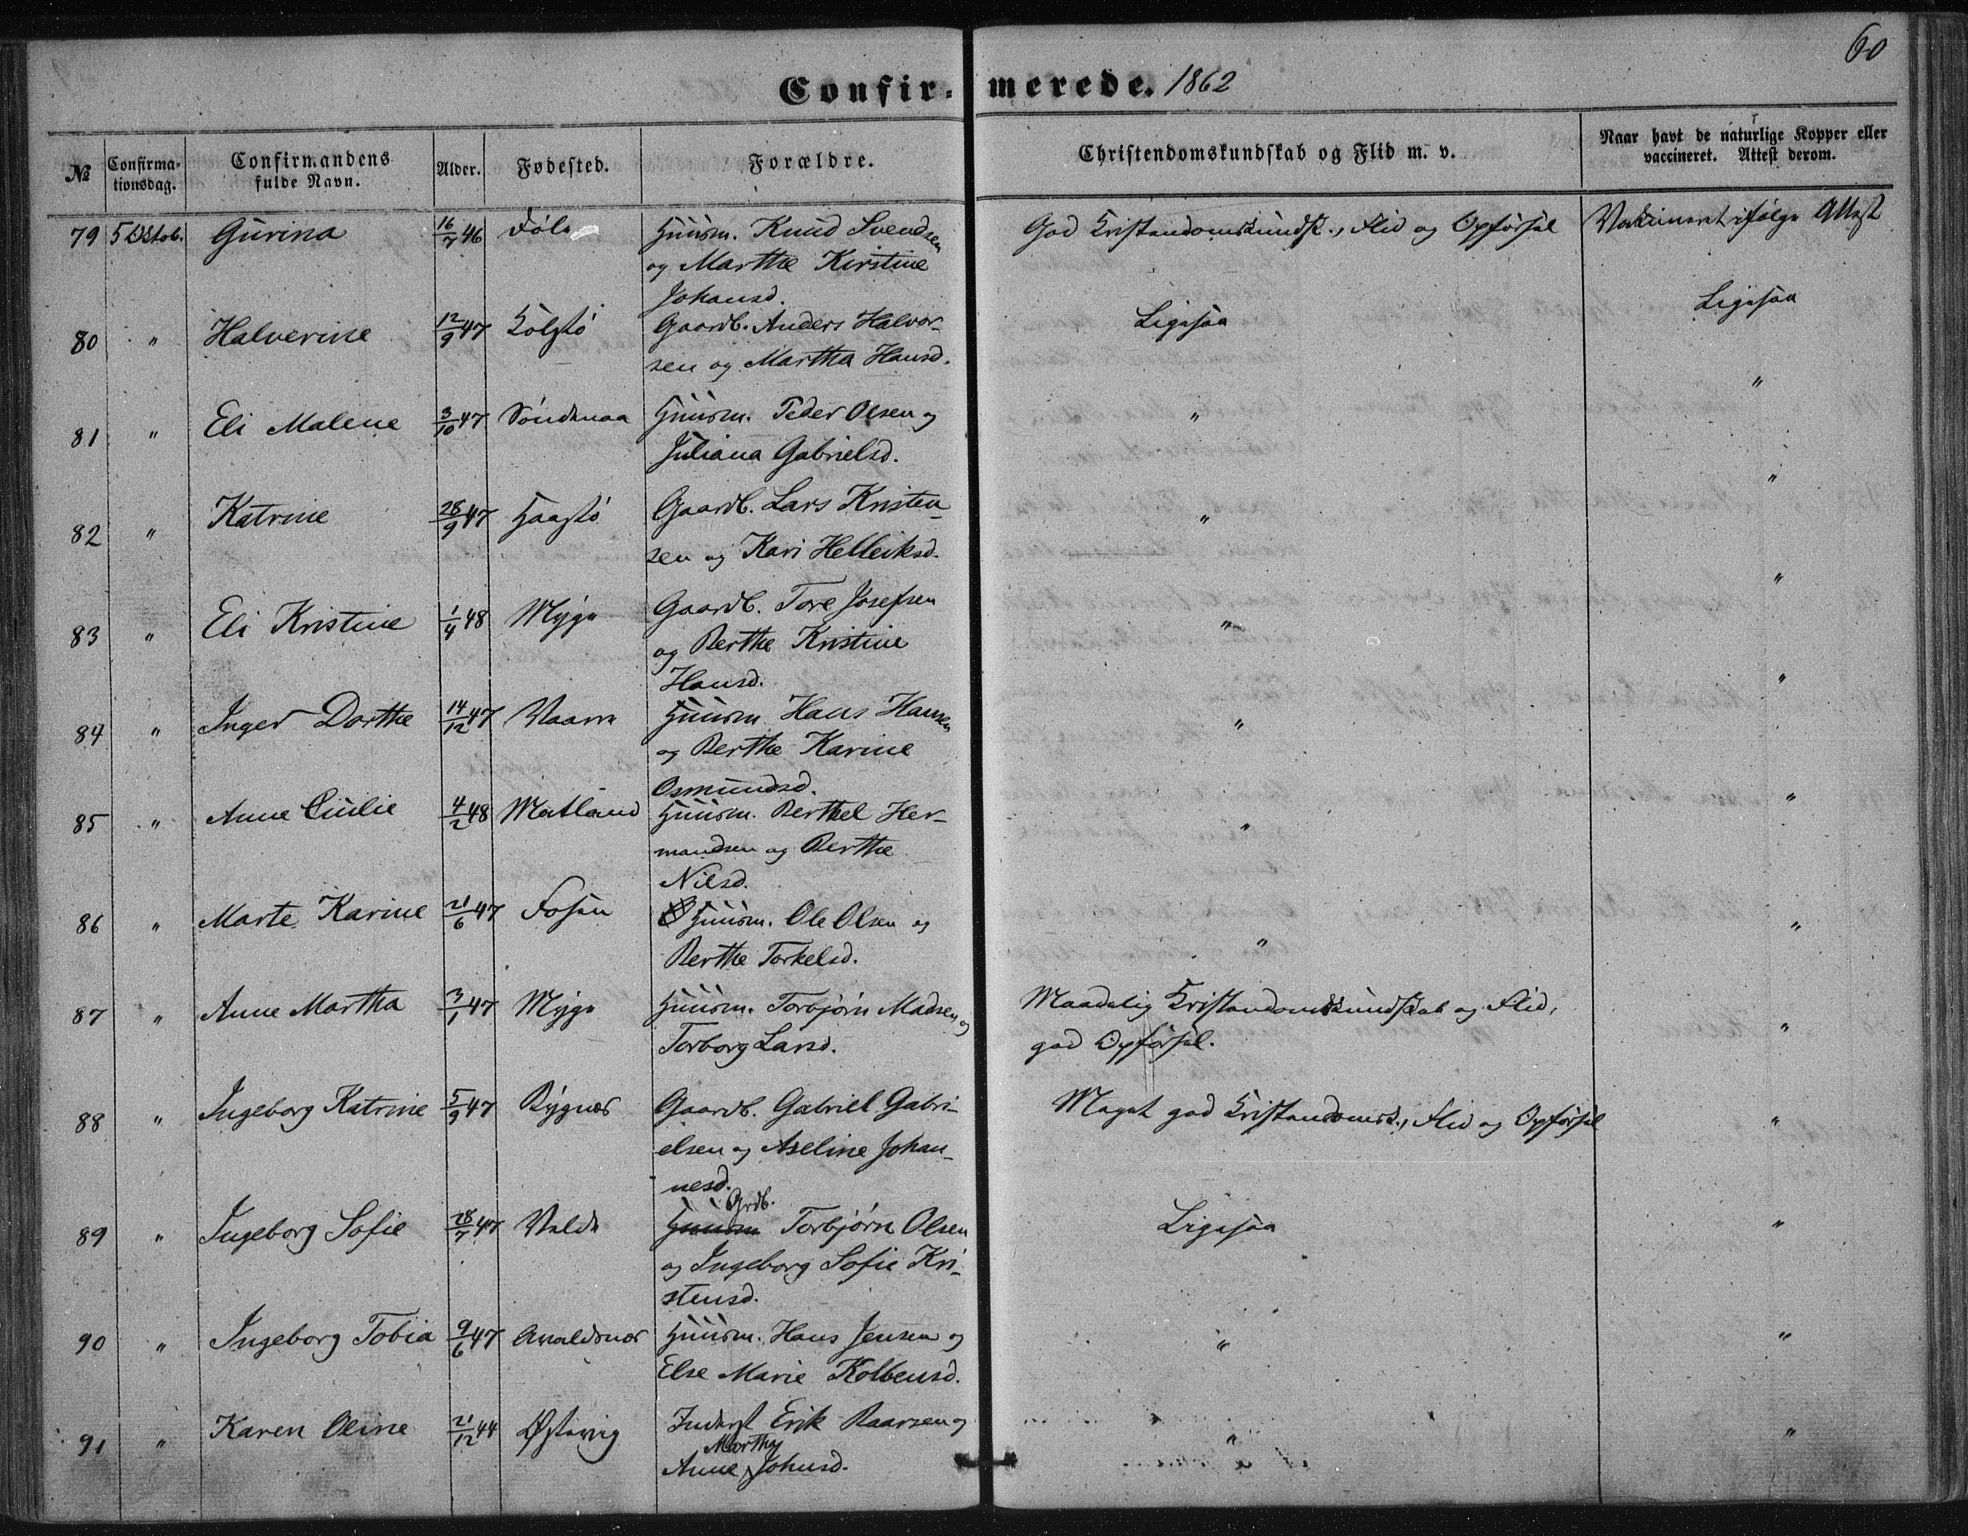 60
Confirmerede. 1862
№
Confirmationsdag.
Confirmandens fulde Navn.
Alder.
Fødested.
Forældre.
Christendomskundskab og Flid m. v.
Naar havt de naturlige Kopper eller vaccineret. Attest derom.
79 5 Oktob. Gurina 16/7 46 Huusm. Knud Svendsen God Kristendomskundsk., Flid og Opførsel Vakcineret ifølge Attest
og Marthe Kirstine
Johansd.
80 " Halverine 12/9 47 Kolstø Gaardb. Anders Halvor- Ligesaa Ligesaa
sen og Martha Hansd.
81 " Eli Malene 3/10 47 Søndenaa Huusm. Peder Olsen og " "
Juliana Gabrielsd.
82 " Katrine 28/9 47 Haastø Gaardb. Lars Kristen- " "
sen og Kari Helleiksd.
83 " Eli Kristine 1/4 48 Myge Gaardb. Tore Josefsen " "
og Berthe Kristine
Hansd.
84 " Inger Dorthe 14/12 47 Vaare Huusm. Hans Hansen " "
og Berthe Karine
Osmundsd.
85 " Anne Cicilie 4/2 48 Matland Huusm. Berthel Her- " "
mandsen og Berthe
Nilsd.
86 " Marte Karine 21/6 47 Fosen Huusm. Ole Olsen og " "
Berthe Torkelsd.
87 " Anne Martha 3/1 47 Myge Huusm. Torbjørn Madsen og Maadelig Kristendomskundskab og Flid, "
Torborg Larsd. god Opførsel.
88 " Ingeborg Katrine 5/9 47 Bygnes Gaardb. Gabriel Gabri- Meget god Kristendomsk., Flid og Opførsel "
elsen og Aseline Johan-
nesd.
89 " Ingeborg Sofie 28/7 47 Velde Huusm Grdb. Torbjørn Olsen Ligesaa "
og Ingeborg Sofie Kri-
stensd.
90 " Ingeborg Tobia 9/6 47 Avaldsnes Huusm. Hans Jensen og " "
Else Marie Kolbensd.
91 " Karen Oline 21/12 44 Østevig Inderst Erik Baarsen og " "
Anne Martha Johnsd.